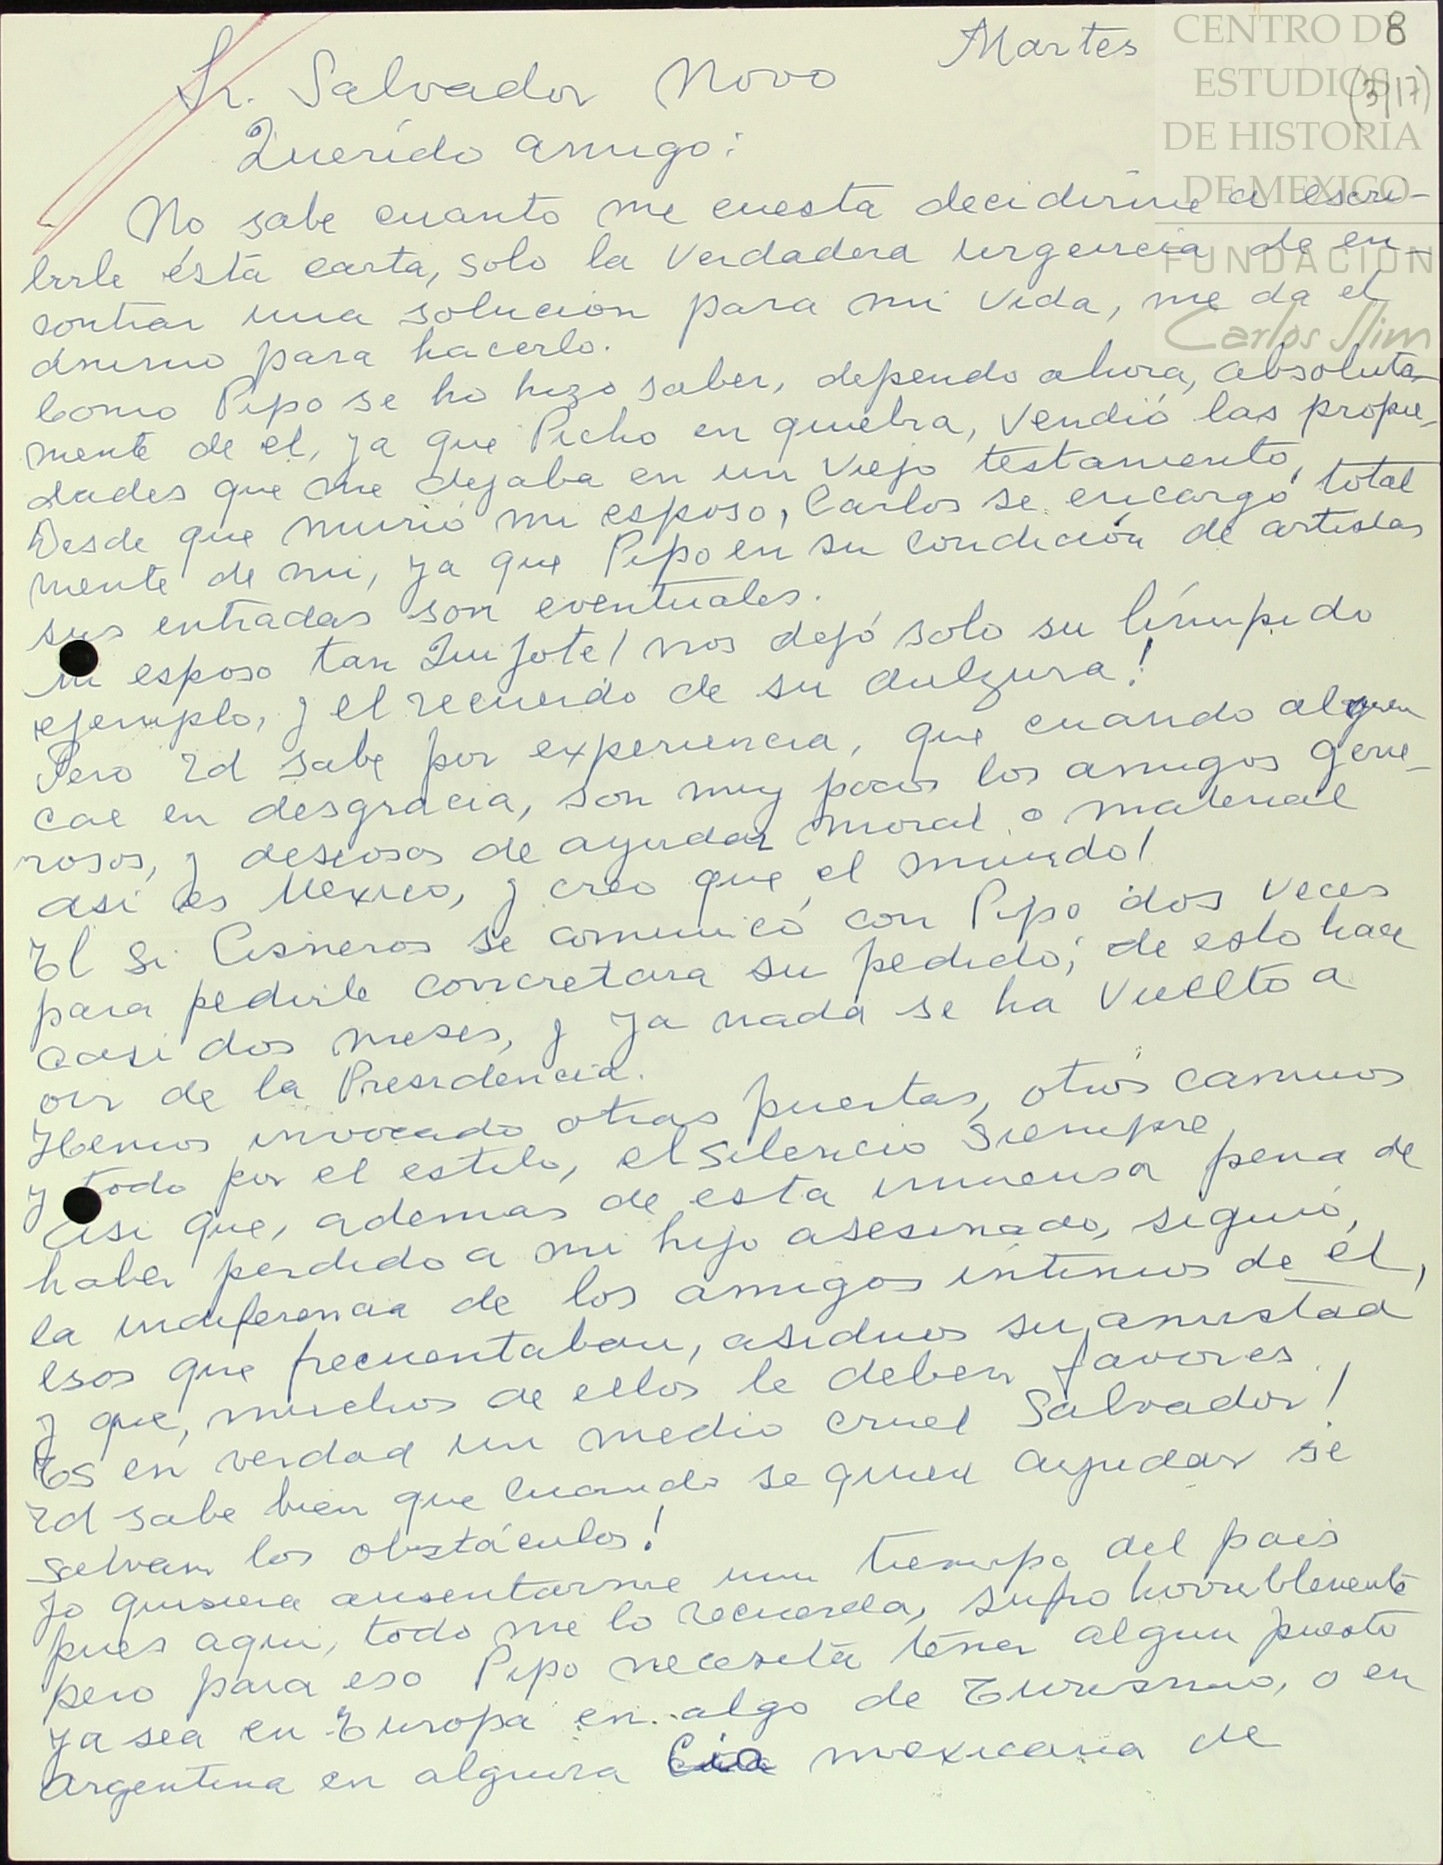 Martes
8
(3/17)
CENTRO DE
ESTUDIOS
DE HISTORIA
DE MEXICO
FUNDACION
Carlos Slim
Sr. Salvador Novo
Querido amigo:
No sabe cuanto me cuesta decidirme a escri-
birle ésta carta, solo la verdadera urgencia de en-
contrar una solucion para mi vida, me da el
ánimo para hacerlo.
Como Pipo se ho hizo saber, dependo ahora, absoluta-
mente de el, ya que Picho en quiebra, vendió las propie-
dades que me dejaba en un viejo testamento,
Desde que murió mi esposo, Carlos se encargó total
mente de mi, ya que Pipo en su condición de artistas
sus entradas son eventuales.
Mi esposo tan Quijote! nos dejó solo su límpido
ejemplo, y el recuerdo de su dulzura!
Pero Ud sabe por experiencia, que cuando alguien
cae en desgracia, son muy pocos los amigos gene-
rosos, y deseosos de ayudar moral o material
asi es Mexico, y creo que el mundo!
El Sr Cisneros se comunicó con Pipo dos veces
para pedirle concretara su pedido; de esto hace
casi dos meses, y ya nada se ha vuelto a
oir de la Presidencia.
Hemos invocado otras puertas, otros caminos
y todo por el estilo, el silencio siempre
Asi que, ademas de esta inmensa pena de
haber perdido a mi hijo asesinado, siguió,
la indiferencia de los amigos intimos de él,
esos que frecuentaban, asiduos su amistad
y que, muchos de ellos le deben favores.
Es en verdad un medio cruel Salvador!
Ud sabe bien que cuando se quiere ayudar se
salvan los obstáculos!
Yo quisiera ausentarme un tiempo del pais
pues aqui, todo me lo recuerda, sufro horriblemente
pero para eso Pipo necesita tener algun puesto
ya sea en Europa en algo de Turismo, o en
Argentina en alguna Cia mexicana de